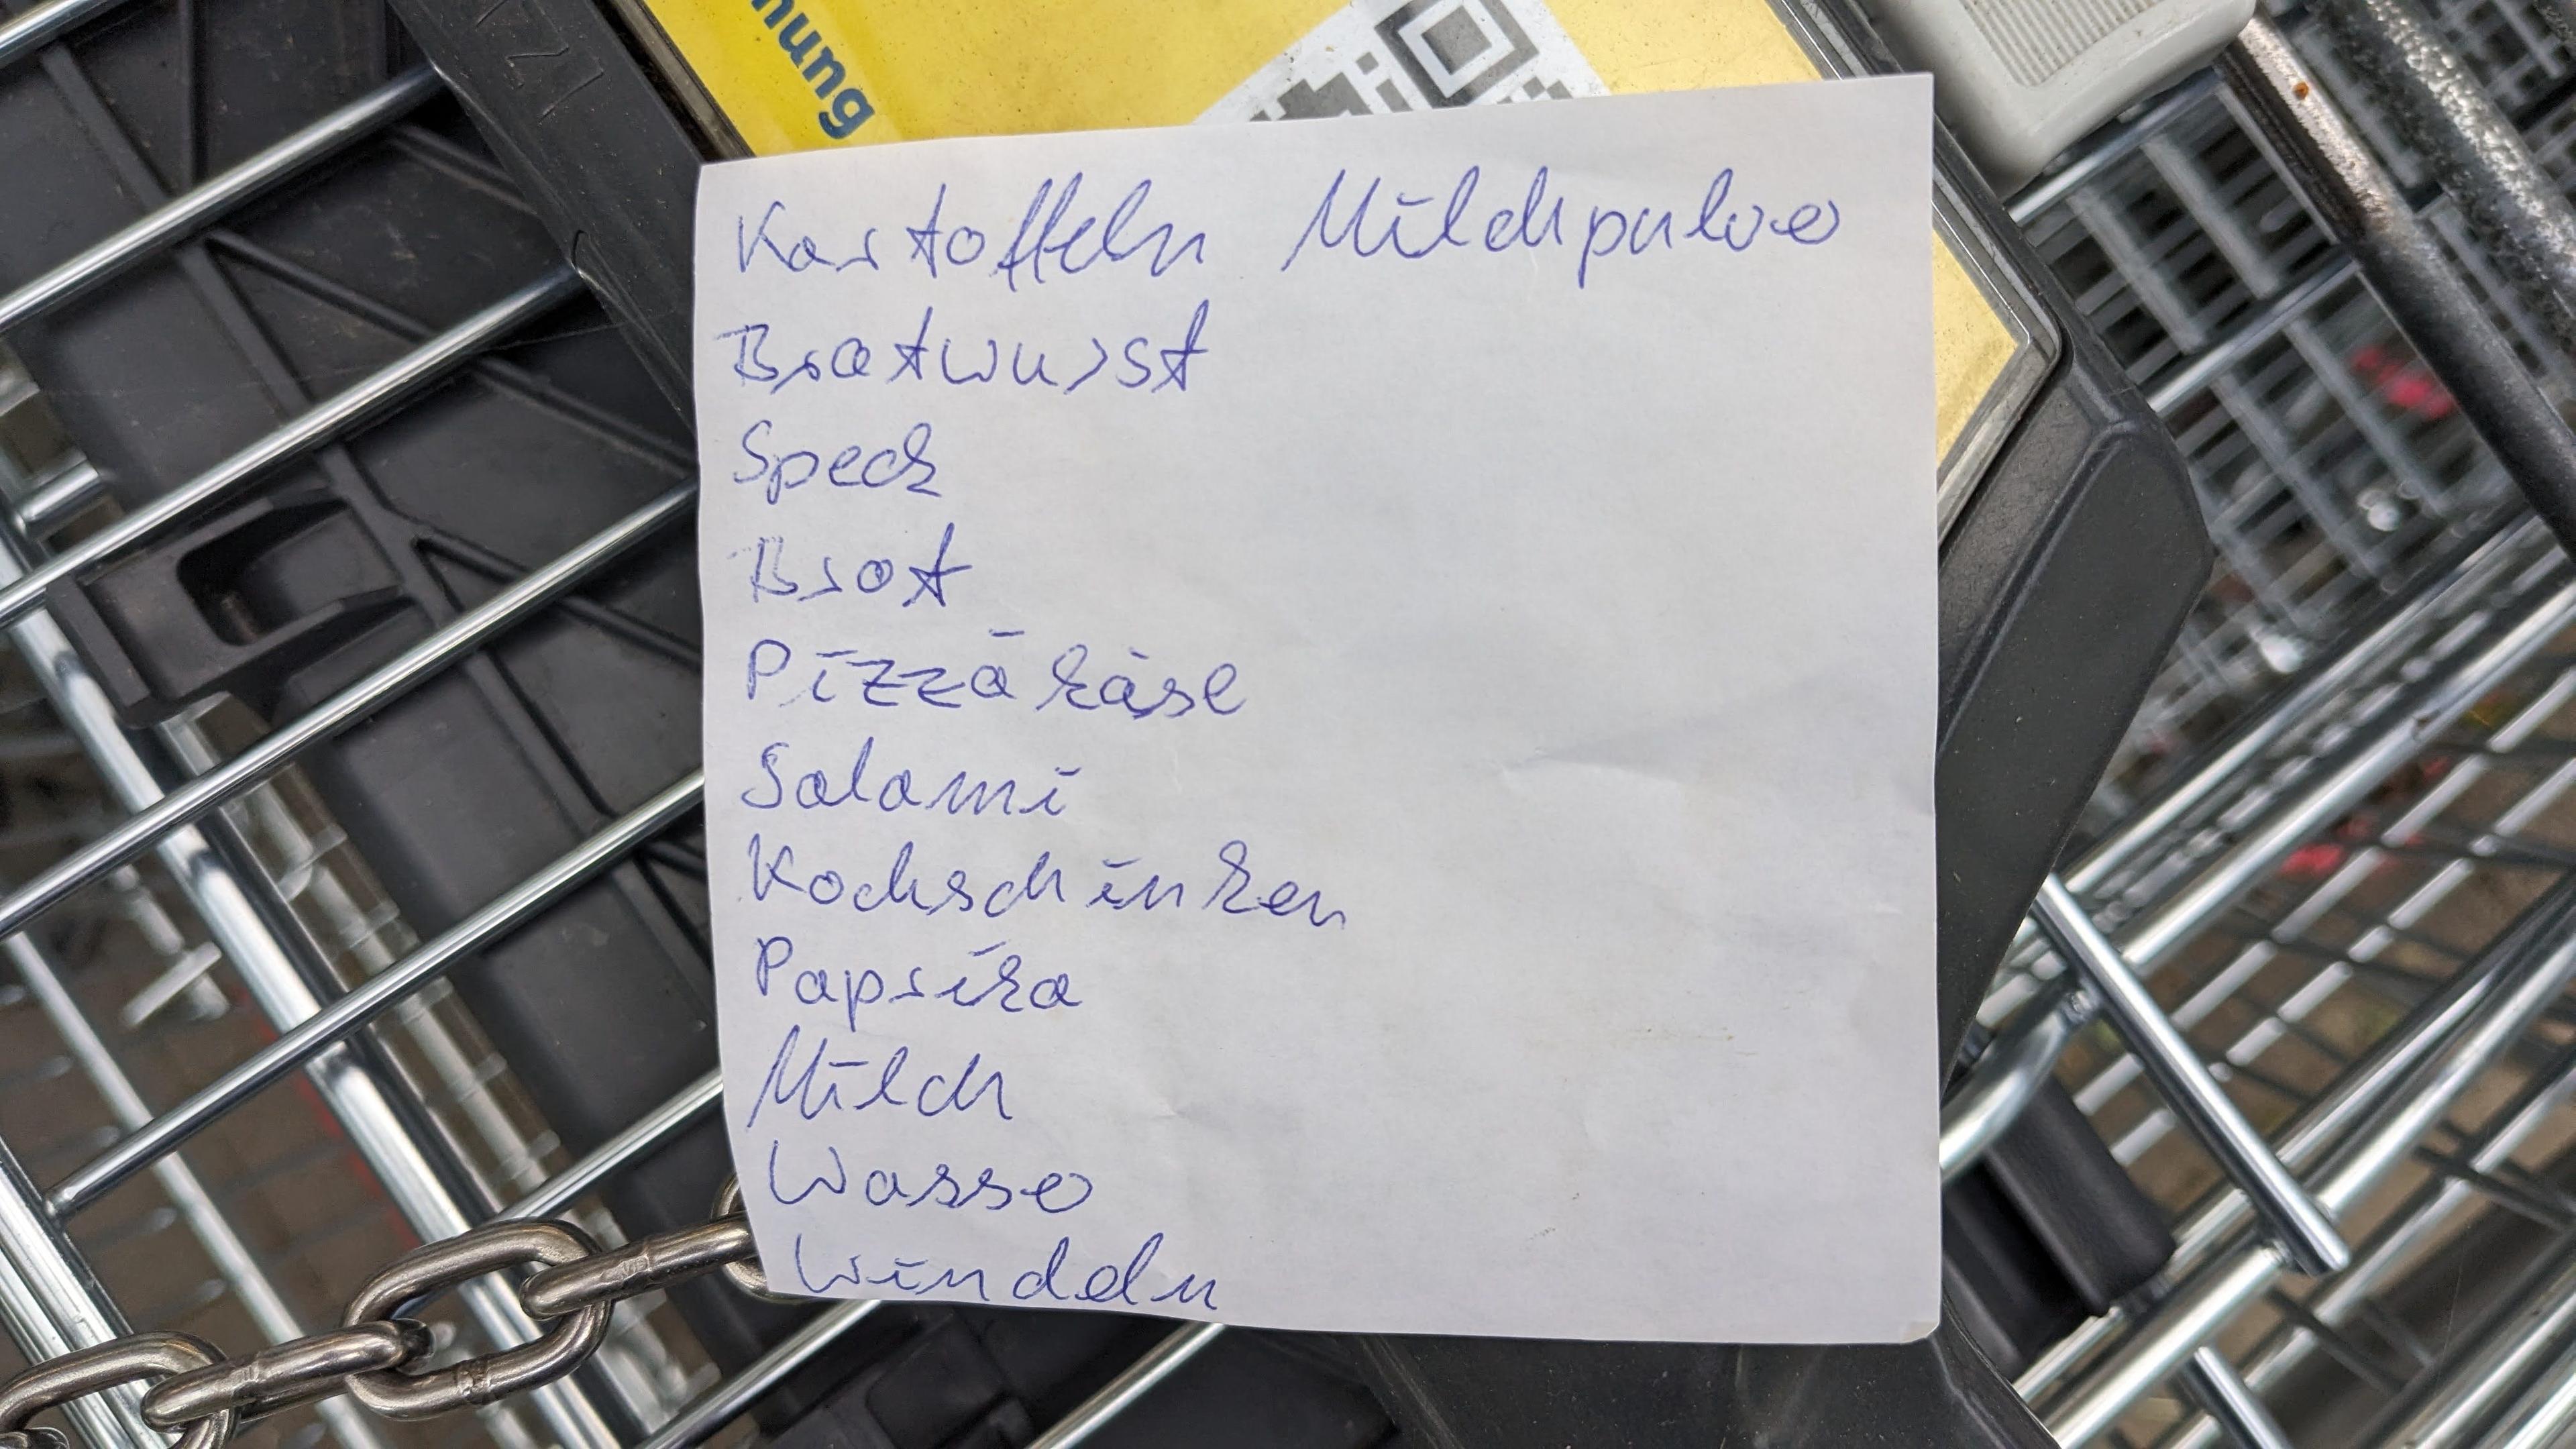 nung
Kartoffeln Milchpulver
Bratwurst
Speck
Brot
Pizzakäse
Salami
Kochschinken
Paprika
Milch
Wasser
Windeln